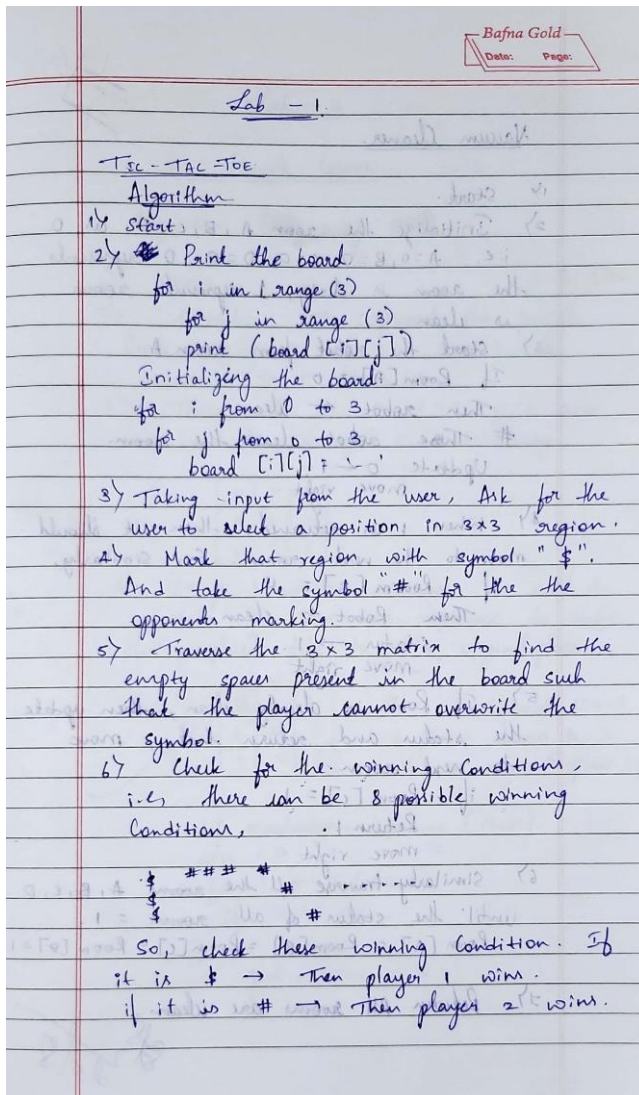 Bafna Gold
Date: Page:
Lab - 1.
TIC - TAC - TOE
Algorithm
1) Start
2) Print the board
for i in range (3)
for j in range (3)
print (board [i][j])
Initializing the board.
for i from 0 to 3
for j from 0 to 3
board [i][j] = '-'
3) Taking input from the user, Ask for the
user to select a position in 3x3 region.
4) Mark that region with symbol "$".
And take the symbol "#" for the the
opponents marking.
5) Traverse the 3x3 matrix to find the
empty spaces present in the board such
that the player cannot overwrite the
symbol.
6) Check for the winning Conditions,
i.e, there can be 8 possible winning
Conditions,
$ # # # #
$ # ........
$ #
So, check these winning Condition. If
it is $ → Then player 1 wins.
if it is # → Then player 2 wins.